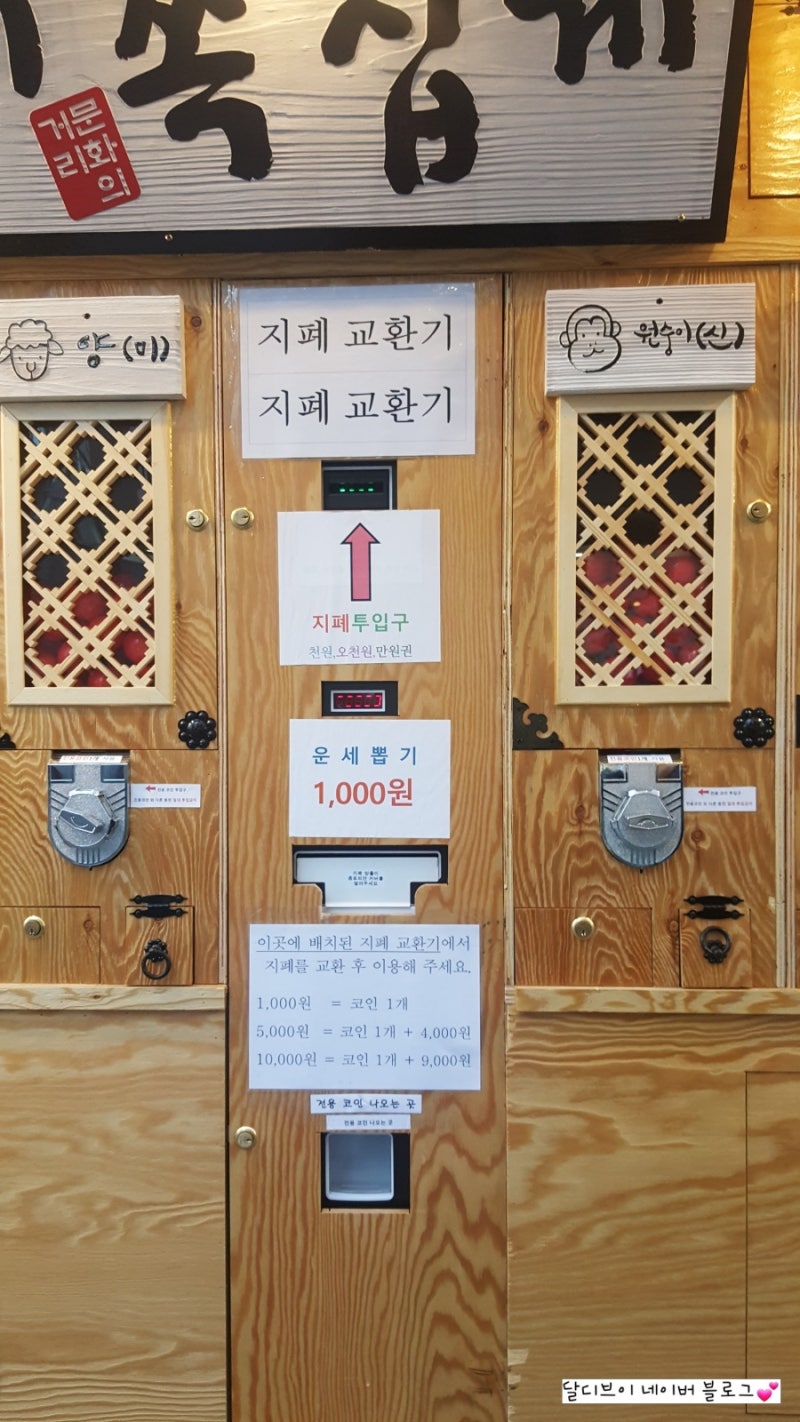 쪽집게
문화의
거리
양(미)
지폐 교환기
지폐 교환기
원숭이(신)
지폐투입구
천원,오천원,만원권
운세뽑기
1,000원
이곳에 배치된 지폐 교환기에서
지폐를 교환 후 이용해 주세요.
1,000원 = 코인 1개
5,000원 = 코인 1개 + 4,000원
10,000원 = 코인 1개 + 9,000원
전용 코인 나오는 곳
전용 코인 나오는 곳
전용 코인 투입구
전용 코인 투입구
달디브이 네이버 블로그💕